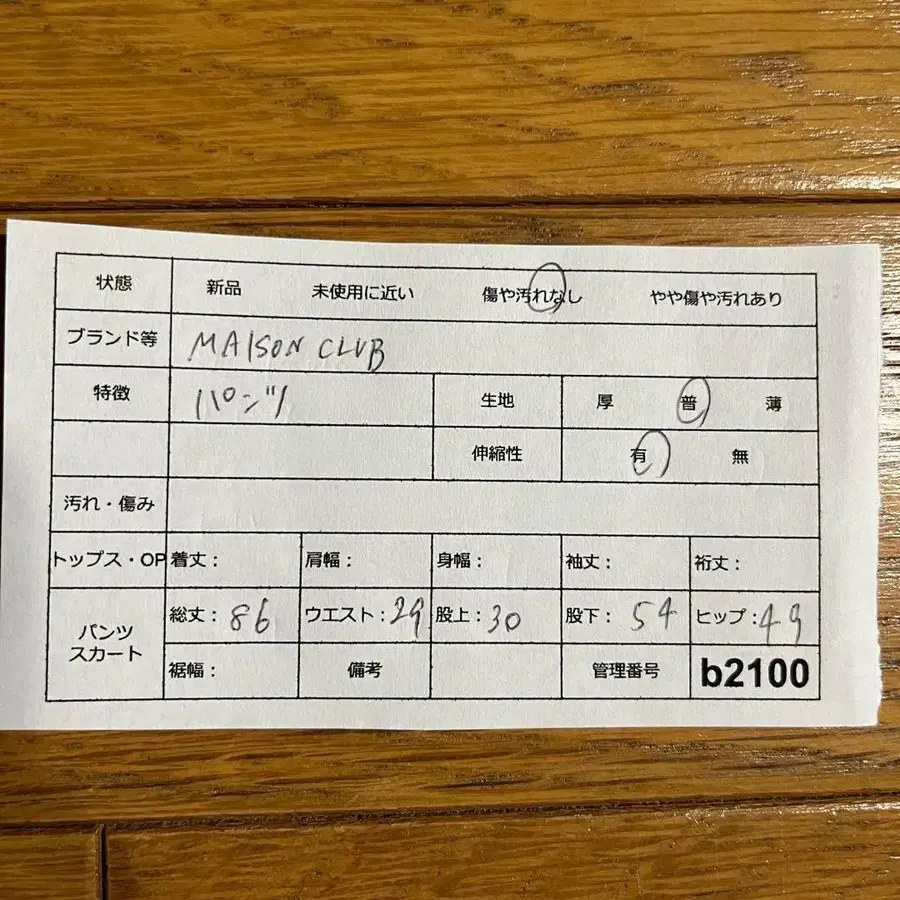 状態 新品 未使用に近い 傷や汚れなし やや傷や汚れあり
ブランド等 MAISON CLUB
特徴 パンツ 生地 厚 普 薄
伸縮性 有 無
汚れ・傷み
トップス・OP 着丈： 肩幅： 身幅： 袖丈： 裄丈：
パンツ スカート 総丈：86 ウエスト：29 股上：30 股下：54 ヒップ：49
裾幅： 備考 管理番号 b2100